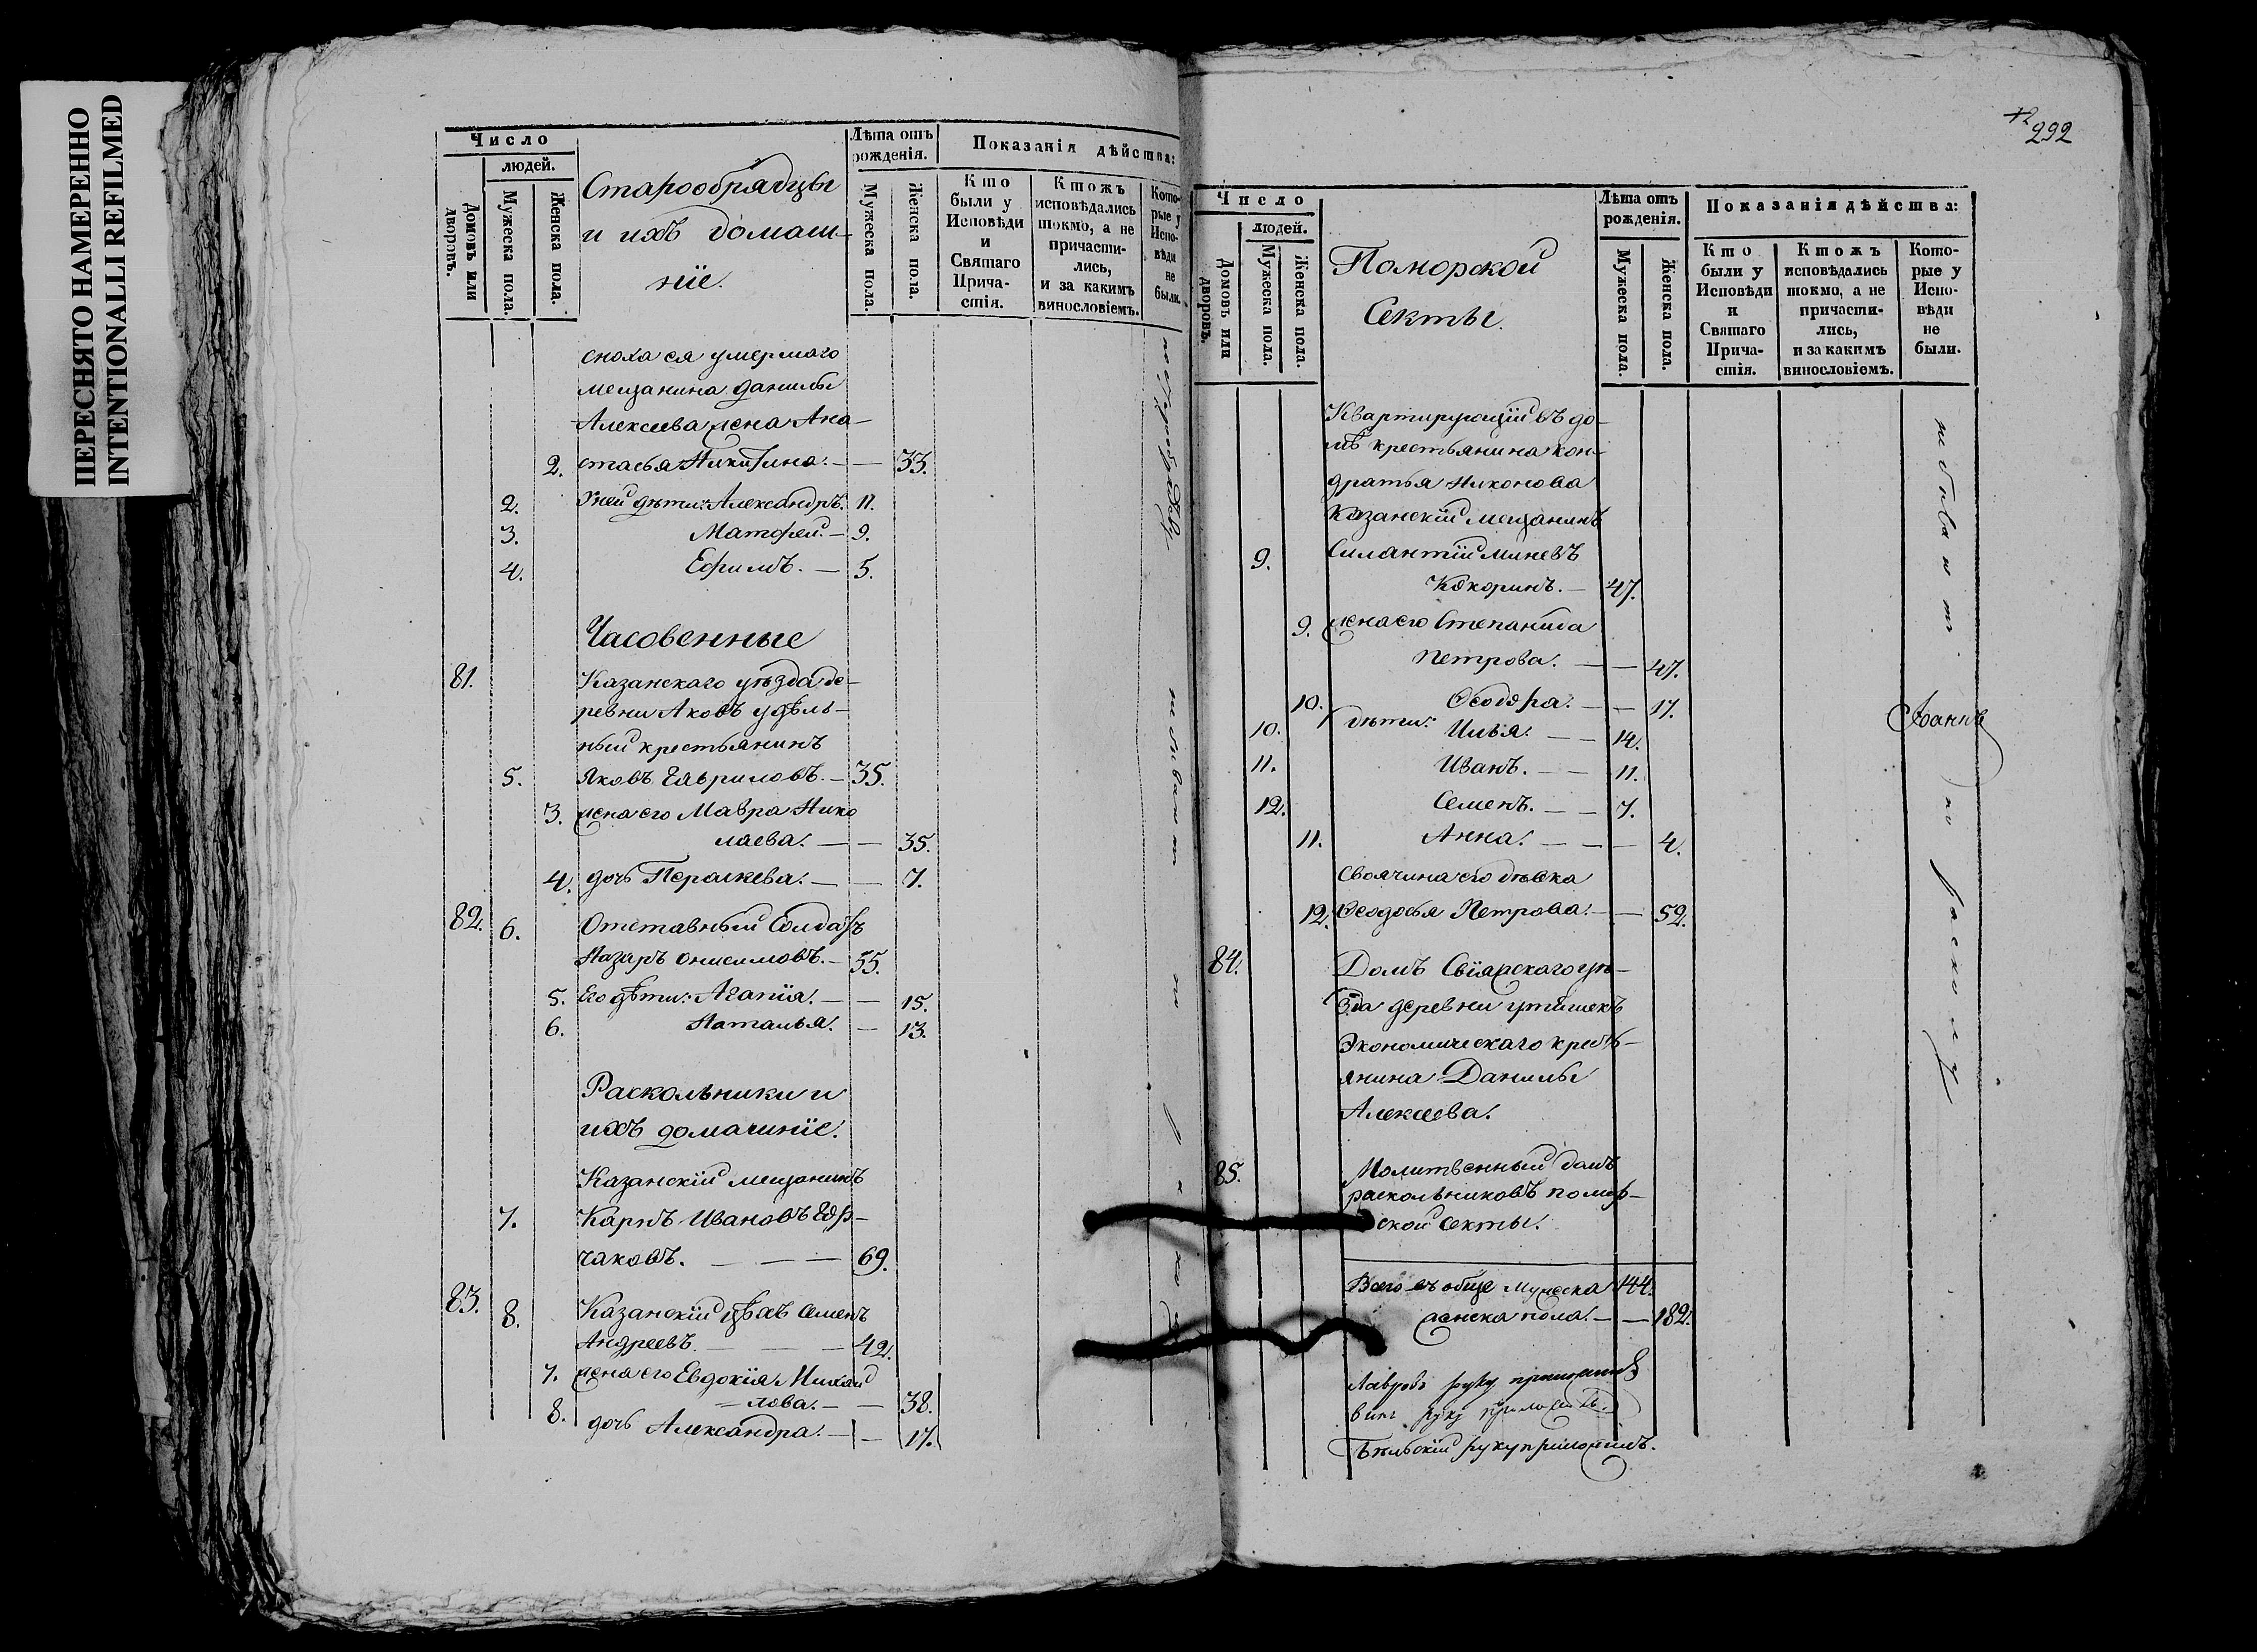 ПЕРЕСНЯТО НАМЕРЕННО
INTENTIONALLI REFILMED
Число
людей.
Домовъ или дворовъ.
Мужеска пола.
Женска пола.
Старообрядцы
и ихъ домаш-
нiе.
Лѣта отъ
рожденiя.
Мужеска пола.
Женска пола.
Показанiя дѣйства:
Кто
были у
Исповѣди
и
Святаго
Прича-
стiя.
Ктожъ
исповѣдались
токмо, а не
причасти-
лись,
и за какимъ
винословiемъ.
Кото-
рые у
Испо-
вѣди
не
были.
сноха ея умершаго
мещанина Данилы
Алексеева жена Ана-
2. стасья Никитина. — — 33.
2. У ней дѣти: Александръ. 11.
3. Матфей. — 9.
4. Ефимъ. — 5.
Часовенные
81. Казанскаго уѣзда де-
ревни Аковъ удѣль-
ный крестьянинъ
5. Яковъ Гавриловъ. — 35.
3. жена его Мавра Нико
лаева. — — 35.
4. дочь Пераскева. — — 7.
82. 6. Отставный Солдатъ
Назаръ Онисимовъ. — 55.
5. Его дѣти: Агапiя. — — 15.
6. Наталья. — 13.
Раскольники и
ихъ домашнiе.
Казанскiй мещанинъ
7. Карпъ Ивановъ Гор-
чаковъ. — — — 69.
83. 8. Казанскiй цѣхъ Семенъ
Андреевъ. — — — 42.
7. жена его Евдокiя Михай
— лова. — — 38.
8. дочь Александра. — — 17.
292
Число
людей.
Домовъ или дворовъ.
Мужеска пола.
Женска пола.
Поморской
Секты.
Лѣта отъ
рожденiя.
Мужеска пола.
Женска пола.
Показанiя дѣйства:
Кто
были у
Исповѣди
и
Святаго
Прича-
стiя.
Ктожъ
исповѣдались
токмо, а не
причасти-
лись,
и за какимъ
винословiемъ.
Кото-
рые у
Испо-
вѣди
не
были.
Квартирующiй въ до-
мѣ крестьянина Кон-
дратья Никонова
Казанскiй мещанинъ
9. Силантiй Миневъ
Кокоринъ. — 47.
9. жена его Степанида
Петрова. — — 47.
10. Феодора. — — 17.
10. дѣти: Илья. — — 14.
11. Иванъ. — — 11.
12. Семенъ. — — 7.
11. Анна. — — — 4.
Своячина его дѣвка
12. Феодосья Петрова. — — 52.
84. Домъ Свiяжскаго уѣ-
зда деревни
Экономическаго кресть-
янина Данилы
Алексеева.
85. Молитвенный домъ
раскольниковъ помор-
ской секты.
Всего въ обще Мужеска 144.
женска пола. — — 182.
руку приложилъ
руку приложилъ.
Бѣльскiй руку приложилъ.